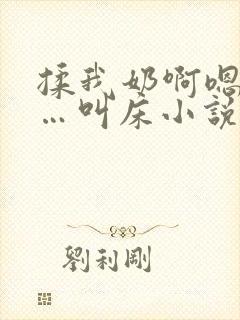 揉我奶啊嗯
…叫床小說
劉利剛